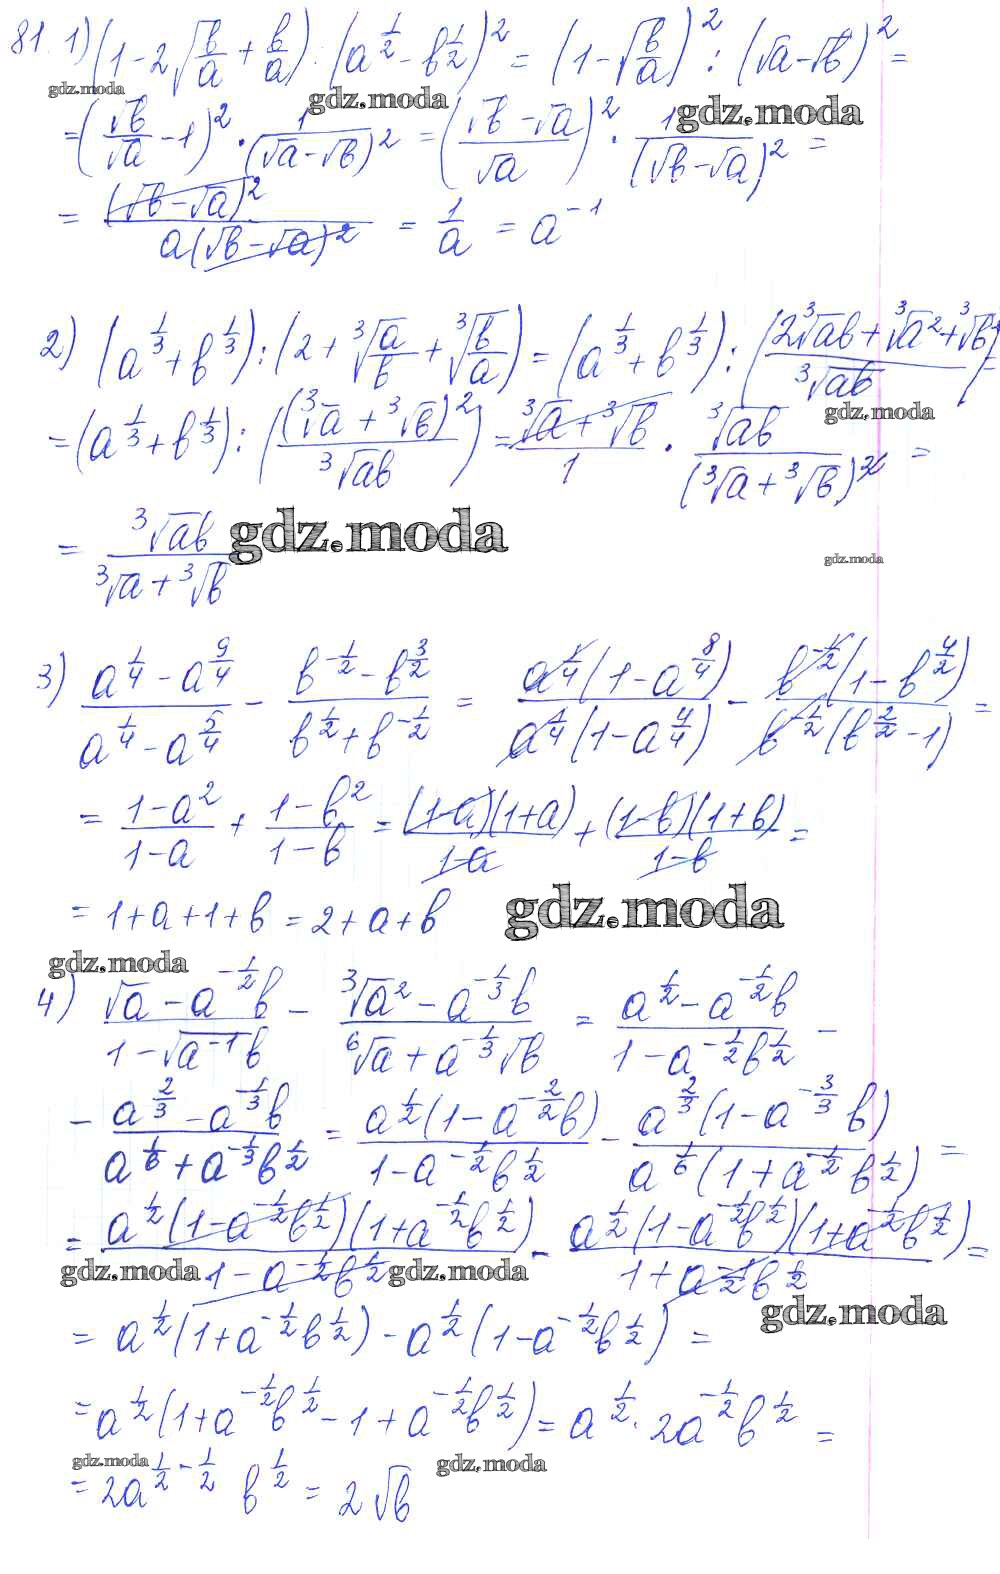 81. 1) (1 - 2√(b/a) + b/a) : (a^(1/2) - b^(1/2))^2 = (1 - √(b/a))^2 : (√a - √b)^2 =
gdz.moda gdz.moda gdz.moda
= (√b/√a - 1)^2 · 1/(√a - √b)^2 = ((√b - √a)/√a)^2 · 1/(√b - √a)^2 =
= (√b - √a)^2/(a(√b - √a)^2) = 1/a = a^(-1)
2) (a^(1/3) + b^(1/3)) : (2 + ∛(a/b) + ∛(b/a)) = (a^(1/3) + b^(1/3)) : ((2∛ab + ∛a^2 + ∛b^2)/∛ab) =
gdz.moda
= (a^(1/3) + b^(1/3)) : ((∛a + ∛b)^2/∛ab) = (∛a + ∛b)/1 · ∛ab/(∛a + ∛b)^2 =
= ∛ab/(∛a + ∛b)
gdz.moda gdz.moda
3) (a^(1/4) - a^(9/4))/(a^(1/4) - a^(5/4)) - (b^(-1/2) - b^(3/2))/(b^(1/2) + b^(-1/2)) = a^(1/4)(1 - a^(8/4))/(a^(1/4)(1 - a^(4/4))) - b^(-1/2)(1 - b^(4/2))/(b^(-1/2)(b^(2/2) - 1)) =
= (1 - a^2)/(1 - a) + (1 - b^2)/(1 - b) = (1-a)(1+a)/(1-a) + (1-b)(1+b)/(1-b) =
= 1 + a + 1 + b = 2 + a + b
gdz.moda
gdz.moda
4) (√a - a^(-1/2)b)/(1 - √(a^(-1)b)) - (∛a^2 - a^(-1/3)b)/(⁶√a + a^(-1/3)√b) = (a^(1/2) - a^(-1/2)b)/(1 - a^(-1/2)b^(1/2)) -
- (a^(2/3) - a^(-1/3)b)/(a^(1/6) + a^(-1/3)b^(1/2)) = a^(1/2)(1 - a^(-2/2)b)/(1 - a^(-1/2)b^(1/2)) - a^(2/3)(1 - a^(-3/3)b)/(a^(1/6)(1 + a^(-1/2)b^(1/2))) =
= a^(1/2)(1 - a^(-1/2)b^(1/2))(1 + a^(-1/2)b^(1/2))/(1 - a^(-1/2)b^(1/2)) - a^(1/2)(1 - a^(-1/2)b^(1/2))(1 + a^(-1/2)b^(1/2))/(1 + a^(-1/2)b^(1/2)) =
gdz.moda gdz.moda gdz.moda
= a^(1/2)(1 + a^(-1/2)b^(1/2)) - a^(1/2)(1 - a^(-1/2)b^(1/2)) =
= a^(1/2)(1 + a^(-1/2)b^(1/2) - 1 + a^(-1/2)b^(1/2)) = a^(1/2) · 2a^(-1/2)b^(1/2) =
gdz.moda gdz.moda
= 2a^(1/2 - 1/2) b^(1/2) = 2√b